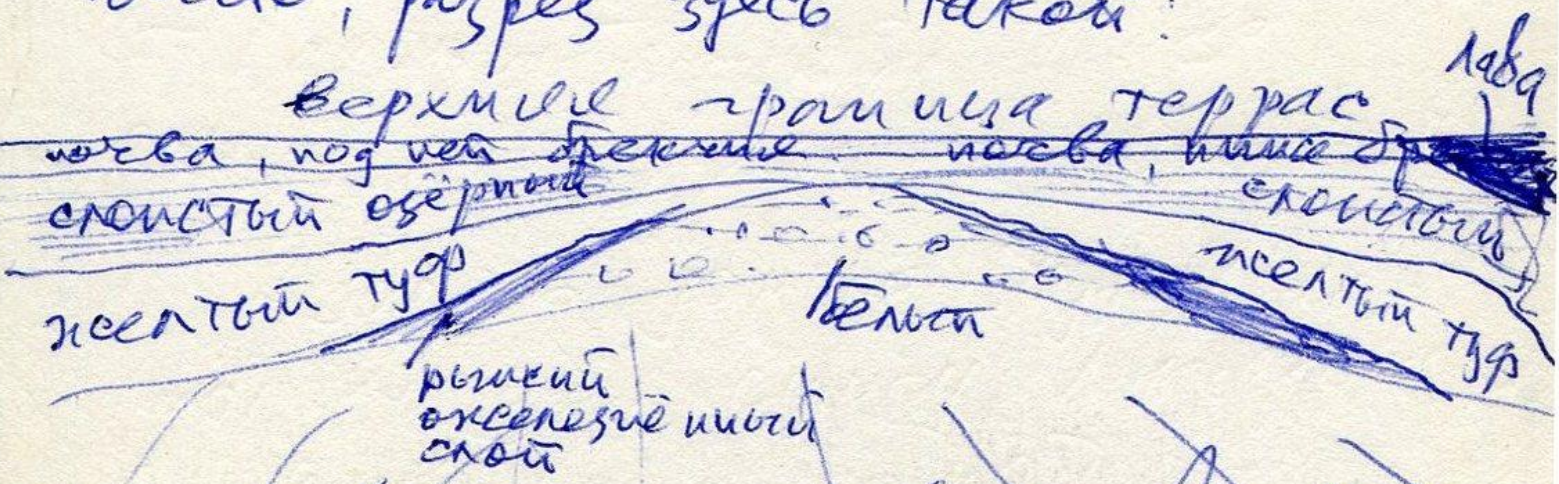 , разрез здесь такой:
лава
верхняя граница террас
почва, под ней брекчия почва, ниже
слоистый озёрный слоистый
желтый туф желтый туф
белый
рыжий
ожелезнённый
слой